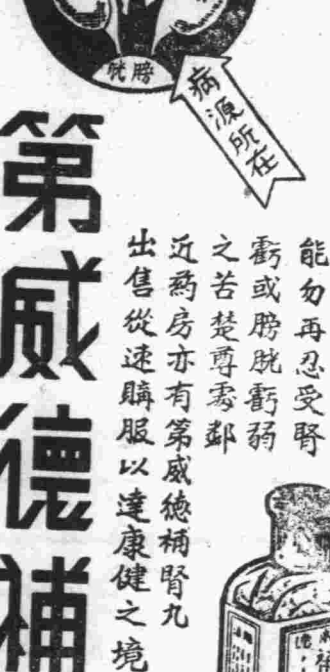 膀胱
病源所在
能勿再忍受腎
虧或膀胱虧弱
之苦楚尊處鄰
近葯房亦有第威德補腎丸
出售從速購服以達康健之境
第威德補